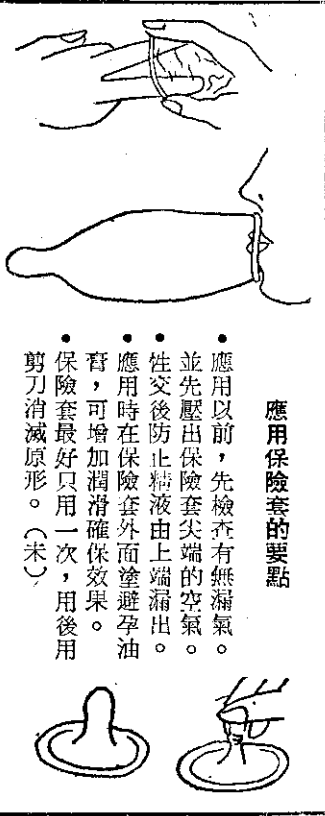 應用保險套的要點
•應用以前，先檢查有無漏氣。
並先壓出保險套尖端的空氣。
•性交後防止精液由上端漏出。
•應用時在保險套外面塗避孕油
膏，可增加潤滑確保效果。
•保險套最好只用一次，用後用
剪刀消滅原形。（未）